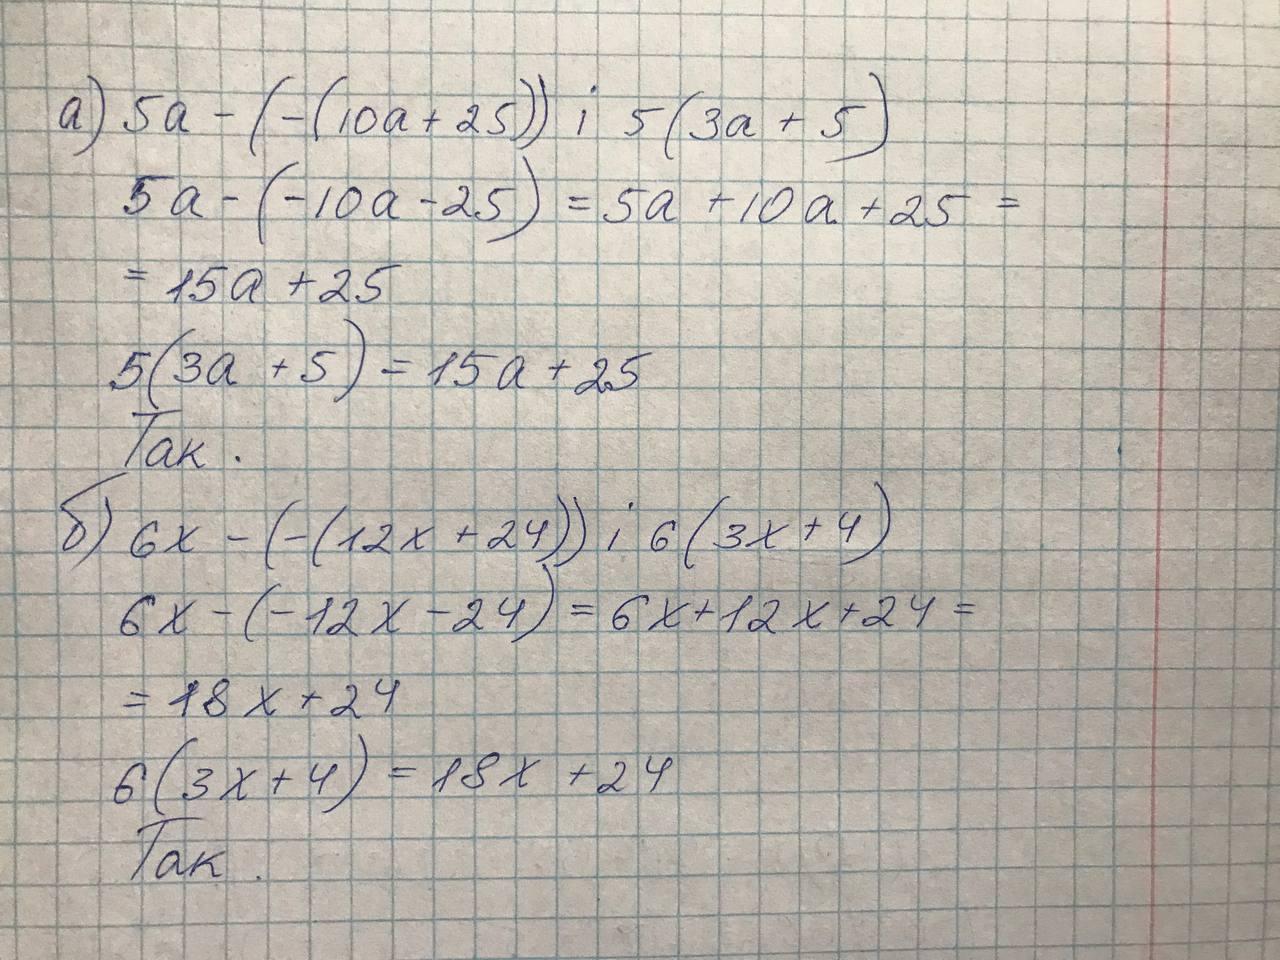 а) 5a - (-(10a + 25)) і 5(3a + 5)
5a - (-10a - 25) = 5a + 10a + 25 =
= 15a + 25
5(3a + 5) = 15a + 25
Так.
б) 6x - (-(12x + 24)) і 6(3x + 4)
6x - (-12x - 24) = 6x + 12x + 24 =
= 18x + 24
6(3x + 4) = 18x + 24
Так.